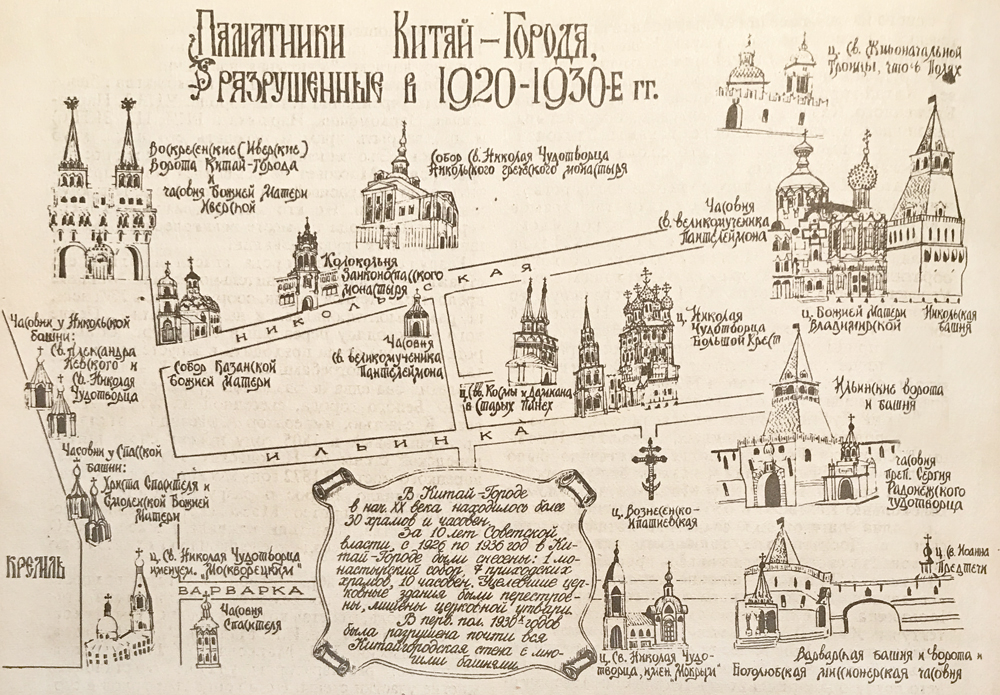 Памятники Китай-Города,
разрушенные в 1920-1930-е гг.
ц. Св. Живоначальной
Троицы, что в Полях
Воскресенские (Иверские)
Ворота Китай-города
и
часовня Божией Матери
Иверской
Собор Св. Николая Чудотворца
Никольского греческого монастыря
Часовня
Св. великомученика
Пантелеймона
Колокольня
Заиконоспасского
монастыря
НИКОЛЬСКАЯ
Часовни у Никольской
башни:
Св. Александра
Невского и
Св. Николая
Чудотворца
Собор Казанской
Божией Матери
Часовня
Св. великомученика
Пантелеймона
ц. Св. Космы и Дамиана
в Старых Панех
ц. Николая
Чудотворца
Большой Крест
ц. Божией Матери
Владимирской
Никольская
башня
Ильинские ворота
и башня
ИЛЬИНКА
Часовни у Спасской
башни:
Христа Спасителя и
Смоленской Божией
Матери
часовня
преп. Сергия
Радонежского
чудотворца
ц. Вознесенско-
Ипатиевская
В Китай-Городе
в нач. XX века находилось более
30 храмов и часовен.
За 10 лет Советской
власти, с 1926 по 1936 год в Ки-
тай-Городе были снесены: 1 мо-
настырский собор, 7 приходских
храмов, 10 часовен. Уцелевшие цер-
ковные здания были перестрое-
ны, лишены церковной утвари.
В перв. пол. 1930х годов
была разрушена почти вся
Китайгородская стена с мно-
гими башнями.
КРЕМЛЬ
ц. Св. Николая Чудотворца
именуем. "Москворецким"
ВАРВАРКА
Часовня
Спасителя
ц. Св. Николая Чудо-
творца, имен. "Мокрый"
ц. Св. Иоанна
Предтечи
Варварская башня и ворота и
Боголюбская миссионерская часовня